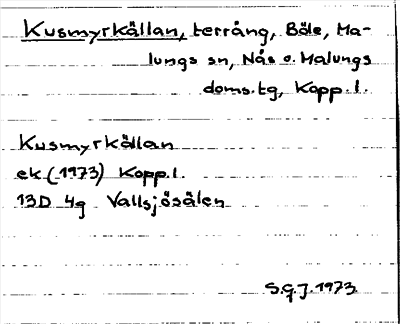 Kusmyrkällan, terräng, Böle, Ma-
lungs sn, Nås o. Malungs
doms.tg, Kopp. l.
Kusmyrkällan
ek (1973) Kopp. l.
13D 4g Vallsjösälen
S.G.J. 1973